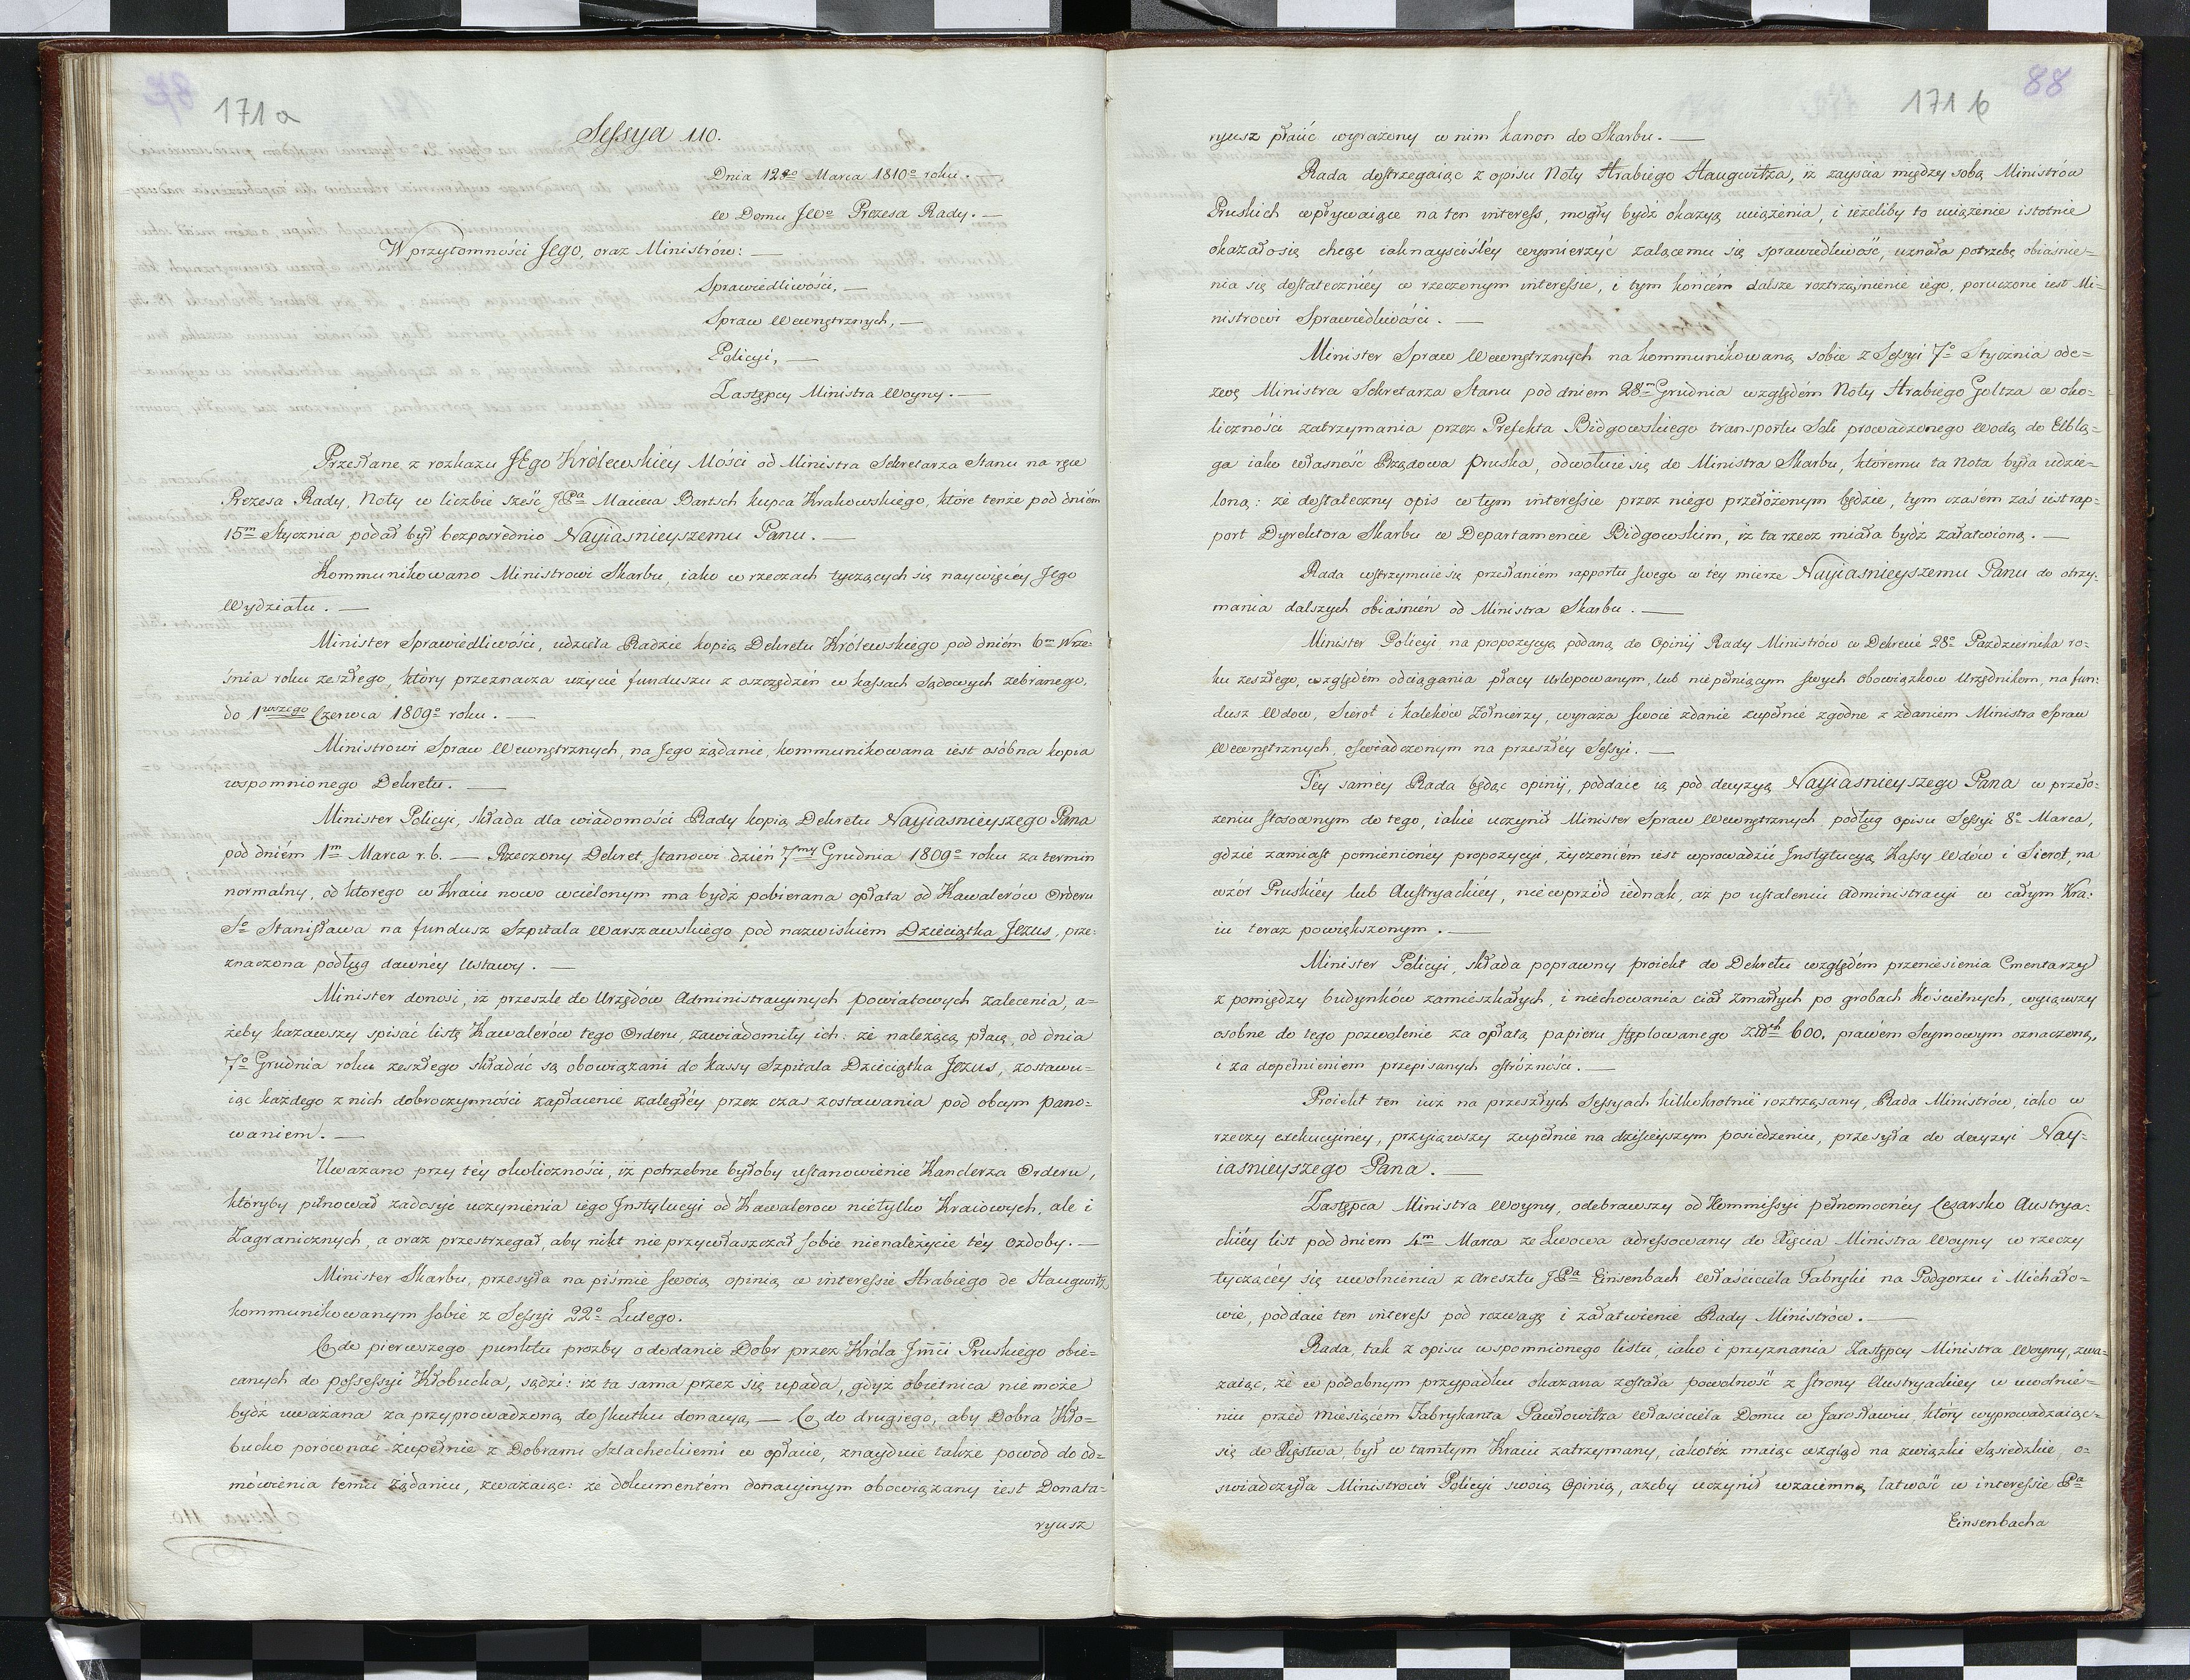 171a
Sessya 110.
Dnia 12go Marca 1810o roku. —
w Domu JWo Prezesa Rady. —
W przytomności Jego, oraz Ministrów: —
Sprawiedliwości, —
Spraw Wewnętrznych, —
Policyi, —
Zastępcy Ministra Woyny. —
Przesłane z rozkazu JEgo Królewskiéy Mości od Ministra Sekretarza Stanu na ręce
Prezesa Rady, Noty w liczbie sześć JPa Macieia Bartsch kupca Krakowskiego, które tenże pod dniém
15m Stycznia podał był bezpośrednio Nayiasnieyszemu Panu. —
Kommunikowano Ministrowi Skarbu, iako w rzeczach tyczących się naywięcéy Jego
Wydziału. —
Minister Sprawiedliwości, udziela Radzie kopią Dekretu Królewskiego pod dniém 6m Wrze-
śnia roku zeszłego, który przeznacza użycie funduszu z oszczędzeń w kassach Sądowych zebranego,
do 1wszego Czerwca 1809o roku. —
Ministrowi Spraw Wewnętrznych, na Jego żądanie, kommunikowana iest osóbna kopia
wspomnionego Dekretu. —
Minister Policyi, składa dla wiadomości Rady kopią Dekretu Nayiasnieyszego Pana
pod dniém 1m Marca r. b. — Rzeczony Dekret, stanowi dzień 7my Grudnia 1809o roku za termin
normalny, od ktorego w Kraiu nowo wcielonym ma bydź pobierana opłata od Kawalerów Orderu
So Stanisława na fundusz Szpitala Warszawskiego pod nazwiskiem Dzieciątka Jezus, prze-
znaczona podług dawnéy Ustawy. —
Minister donosi, iż przeszle do Urzędów Administracyinych powiatowych zalecenia, a-
żeby kazawszy spisać listę Kawalerów tego Orderu, zawiadomiły ich: że należącą płacę, od dnia
7o Grudnia roku zeszłego składać są obowiązani do kassy Szpitala Dzieciątka Jezus, zostawu-
iąc każdego z nich dobroczynności zapłacenie zaległéy przez czas zostawania pod obcym pano-
waniem. —
Uważano przy téy okoliczności, iż potrzebne byłoby ustanowienie Kanclerza Orderu,
któryby pilnował zadosyć uczynienia iego Instytucyi od Kawalerow nietylko Kraiowych, ale i
Zagranicznych, a oraz przestrzegał, aby nikt nie przywłaszczał sobie nienależycie téy ozdoby. —
Minister Skarbu, przesyła na piśmie swoią opinią w interessie Hrabiego de Haugwitz
kommunikowanym sobie z Sessyi 22o Lutego.
Co do pierwszego punktu prozby o dodanie Dobr przez Króla Jmci Pruskiego obie-
canych do possessyi Kłobucka, sądzi: iż ta sama przez się upada, gdyż obietnica nie może
bydź uważana za przyprowadzoną do skutku donacyą — Co do drugiego, aby Dobra Kło-
bucko porównać zupełnie z Dobrami Szlacheckiemi w opłacie, znayduie także powod do od-
mówienia temu żądaniu, zważaiąc: że dokumentém donacyinym obowiązany iest Donata-
ryusz
171b
88
ryusz płacić wyrażony w nim kanon do Skarbu. —
Rada dostrzegaiąc z opisu Noty Hrabiego Haugwitza, iż zayścia między sobą Ministrów
Pruskich wpływaiące na ten interess, mogły bydź okazyą uciążenia, i ieżeliby to uciążenie istotnie
okazało się chcąc iaknayściśléy wymierzyć żalącemu się sprawiedliwość, uznała potrzebę obiaśnie-
nia się dostateczniéy w rzeczonym interessie, i tym końcém dalsze roztrząśnienie iego, poruczone iest Mi-
nistrowi Sprawiedliwości. —
Minister Spraw Wewnętrznych na kommunikowaną sobie z Sessyi 7o Stycznia ode-
zwę Ministra Sekretarza Stanu pod dniem 28m Grudnia względém Noty Hrabiego Goltza w oko-
liczności zatrzymania przez Prefekta Bidgowskiego transportu Soli prowadzonego wodą do Elblą-
ga iako własność Rządowa pruska, odwołuie się do Ministra Skarbu, któremu ta Nota była udzie-
loną: że dostateczny opis w tym interessie przez niego przełożonym będzie, tym czasém zaś iest rap-
port Dyrektora Skarbu w Departamencie Bidgowskim, iż ta rzecz miała bydź załatwioną. —
Rada wstrzymuie się przesłaniem rapportu swego w téy mierze Nayiasnieyszemu Panu do otrzy-
mania dalszych obiaśnień od Ministra Skarbu. —
Minister Policyi na propozycyą podaną do Opinij Rady Ministrów w Dekrecie 28o Pazdziernika ro-
ku zeszłego, względém odciągania płacy Urlopowanym, lub niepełniącym swych obowiązkow Urzędnikom, na fun-
dusz Wdow, Sierot i kaleków Żołnierzy, wyraża swoie zdanie zupełnie zgodne z zdaniem Ministra Spraw
Wewnętrznych, oświadczonym na przeszłéy Sessyi. —
Téy saméy Rada będąc opinij, poddaie ią pod decyzyą Nayiasnieyszego Pana w przeło-
żeniu stosownym do tego, iakie uczynił Minister Spraw Wewnętrznych podług opisu Sessyi 8o Marca,
gdzie zamiast pomienionéy propozycyi, życzeniém iest wprowadzić Instytucyą Kassy Wdów i Sierot, na
wzór Pruskiéy lub Austryackiéy, nie wprzód iednak, aż po ustaleniu Administracyi w całym Kra-
iu teraz powiększonym. —
Minister Policyi, składa poprawny proiekt do Dekretu względém przeniesienia Cmentarzy
z pomiędzy budynków zamieszkałych, i niechowania ciał zmarłych po grobach Kościelnych, wyiąwszy
osobne do tego pozwolenie za opłatą papieru stęplowanego Złłch 600. prawem Seymowym oznaczoną,
i za dopełnieniem przepisanych ostróżności. —
Proiekt ten iuż na przeszłych Sessyach kilkokrotnie roztrząsany, Rada Ministrów, iako w
rzeczy exekucyinéy, przyiąwszy zupełnie na dzisieyszym posiedzeniu, przesyła do decyzyi Nay-
iasnieyszego Pana. —
Zastępca Ministra Woyny, odebrawszy od Kommissyi pełnomocnéy Cesarsko Austrya-
ckiéy list pod dniem 4m Marca ze Lwowa adressowany do Xięcia Ministra Woyny w rzeczy
tyczącéy się uwolnienia z Aresztu JPa Einsenbach Właściciela Fabryki na Podgorzu i Michało-
wie, poddaie ten interess pod rozwagę i załatwienie Rady Ministrów. —
Rada, tak z opisu wspomnionego listu, iako i przyznania Zastępcy Ministra Woyny, zwa-
żaiąc, że w podobnym przypadku okazana została powolność z strony Austryackiey w uwolnie-
niu przed miesiącem Fabrykanta Pawłowitza właściciela Domu w Jarosławiu, który wyprowadzaiąc
się do Xięstwa, był w tamtym Kraiu zatrzymany, iakotéż maiąc wzgląd na związki Sąsiedzkie, o-
świadczyła Ministrowi Policyi swoią Opinią, ażeby uczynił wzaiemną łatwość w interessie Pa
Einsenbacha